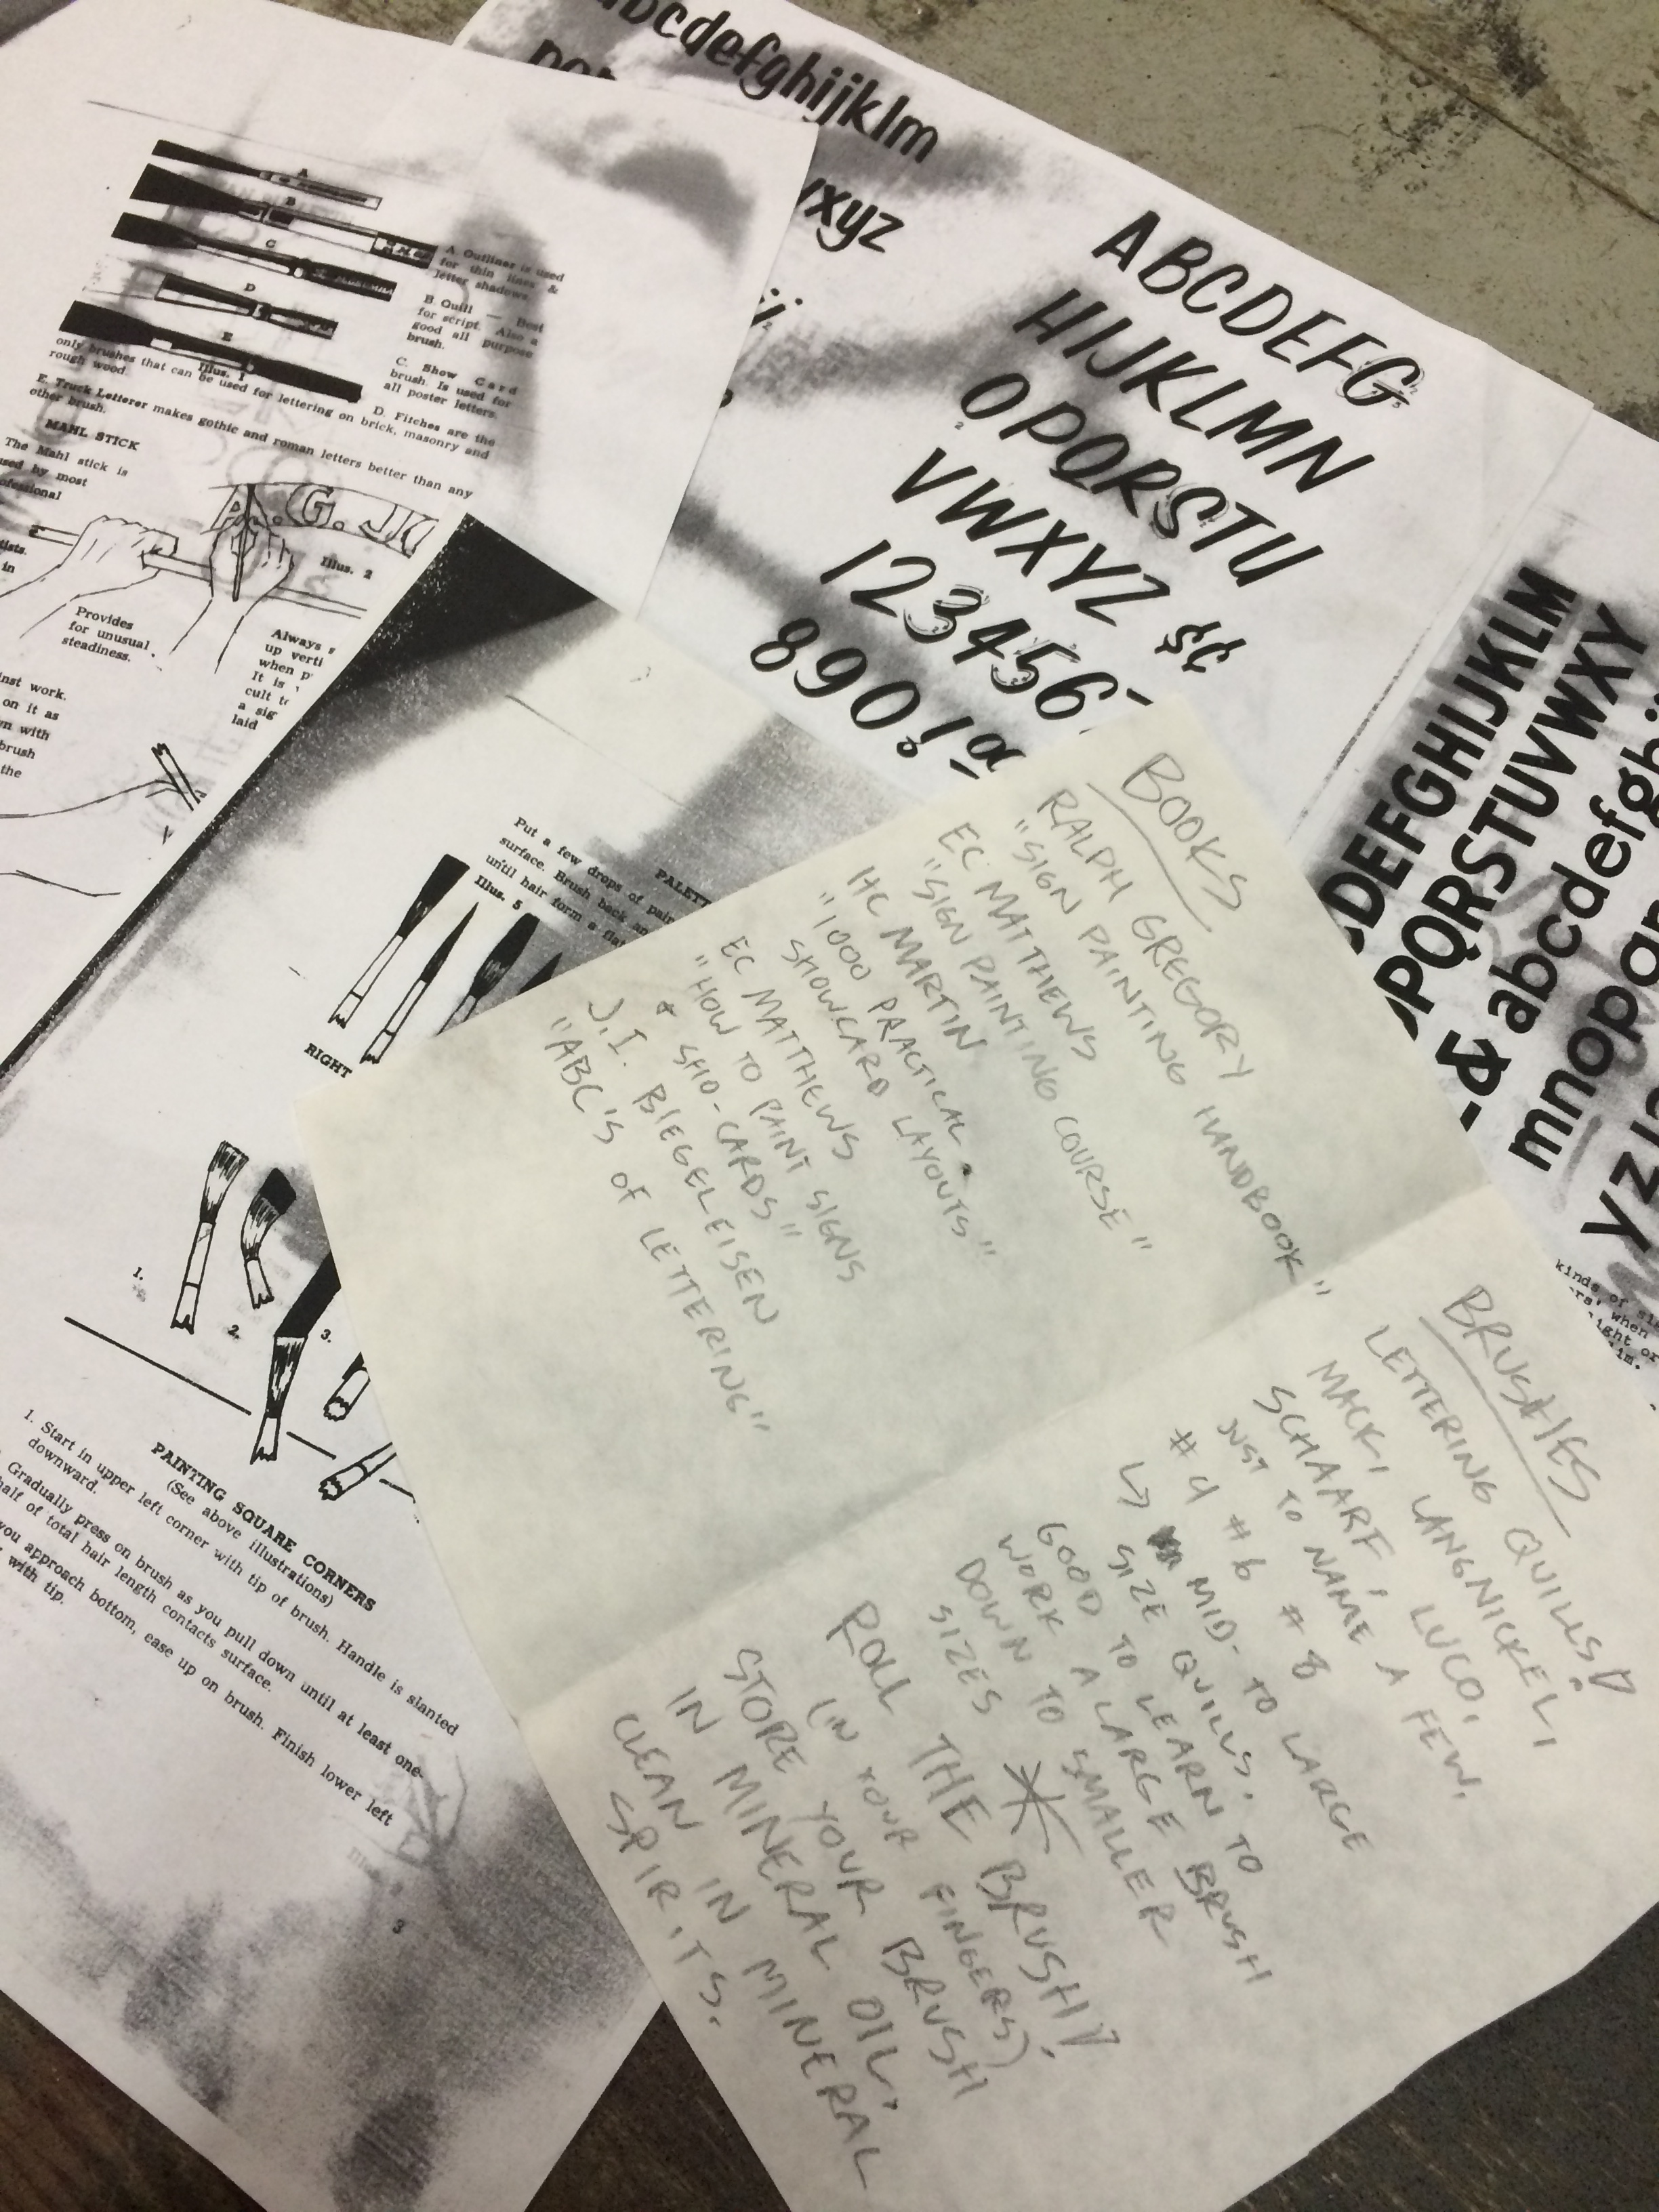 abcdefghijklm
vxyz
ABCDEFG
HIJKLMN
OPQRSTU
VWXYZ $¢
123456
890!
A
B
C
D
E
Illus. 1
A. Outliner is used
for thin lines &
letter shadows.
B Quill — Best
for script. Also a
good all purpose
brush.
C. Show Card
brush. Is used for
all poster letters.
D. Fitches are the
only brushes that can be used for lettering on brick, masonry and
rough wood.
E. Truck Letterer makes gothic and roman letters better than any
other brush.
MAHL STICK
The Mahl stick is
used by most
professional
in
A.G. JO
Illus. 2
Provides
for unusual
steadiness.
Always
up verti
when p
It is
cult to
a sig
laid
inst work.
on it as
with
brush
the
PALETT
Put a few drops of pain
surface. Brush back an
until hair form a flat
Illus. 5
RIGHT
1.
2.
3.
PAINTING SQUARE CORNERS
(See above illustrations)
1. Start in upper left corner with tip of brush. Handle is slanted
downward.
Gradually press on brush as you pull down until at least one-
half of total hair length contacts surface.
you approach bottom, ease up on brush. Finish lower left
with tip.
3
DEFGHIJKLM
PQRSTUVWXY
& abcdefghi
mnopqr
YZ
kinds of
when
ight or
BOOKS
RALPH GREGORY
"SIGN PAINTING HANDBOOK"
EC MATTHEWS
"SIGN PAINTING COURSE"
HC MARTIN
"1000 PRACTICAL
SHOWCARD LAYOUTS"
EC MATTHEWS
"HOW TO PAINT SIGNS
& SHO-CARDS"
J.I. BIEGELEISEN
"ABC'S OF LETTERING"
BRUSHES
LETTERING QUILLS!
MACK, LANGNICKEL,
SCHAARF, LUCO,
JUST TO NAME A FEW.
#4 #6 #8
↳ MID- TO LARGE
SIZE QUILLS.
GOOD TO LEARN TO
WORK A LARGE BRUSH
DOWN TO SMALLER
SIZES
ROLL THE BRUSH!
(IN YOUR FINGERS)
STORE YOUR BRUSH
IN MINERAL OIL.
CLEAN IN MINERAL
SPIRITS.